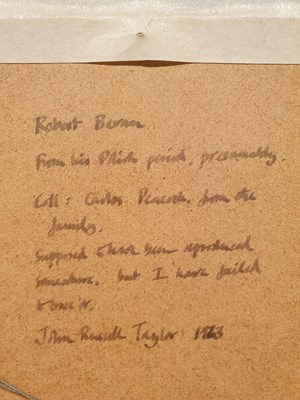 Robert Bevan
From his Polish period, presumably.
Coll: Carlos Peacock, from the
family.
Supposed to have been reproduced
somewhere, but I have failed
to trace it.
John Russell Taylor: